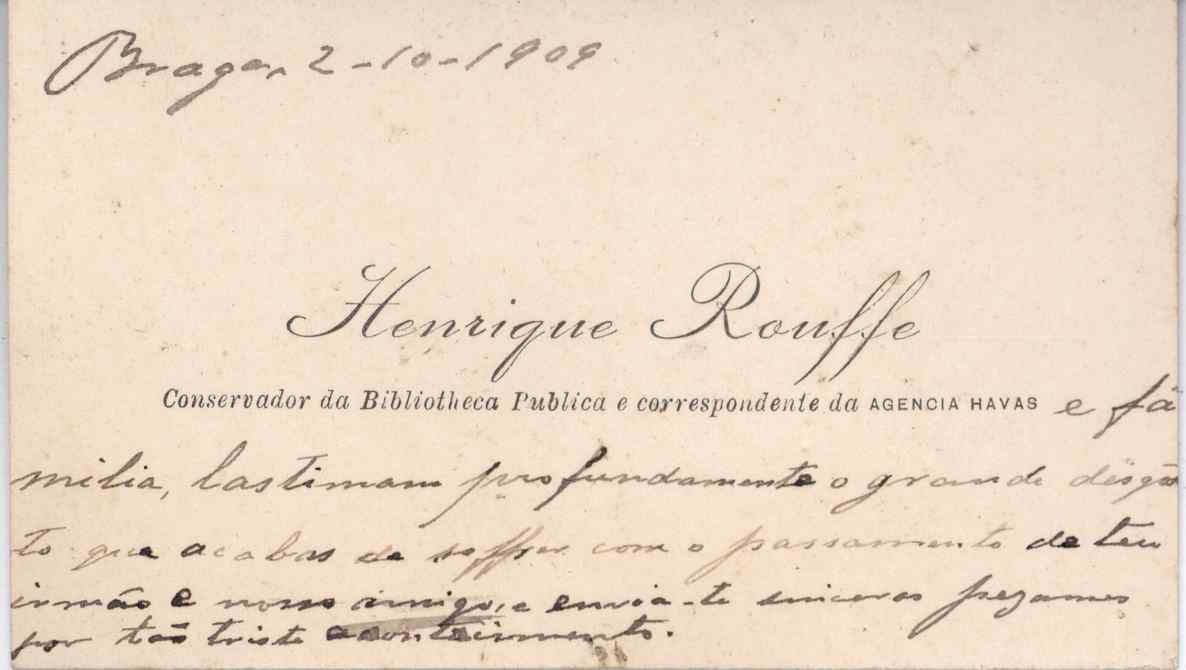 Braga, 2-10-1909
Henrique Rouffe
Conservador da Bibliotheca Publica e correspondente da AGENCIA HAVAS e fa
milia, lastimam profundamente o grande desgos
to que acabas de soffrer com o passamento de teu
irmão e nosso amigo, e envia-te sinceros pezames
por tão triste acontecimento.